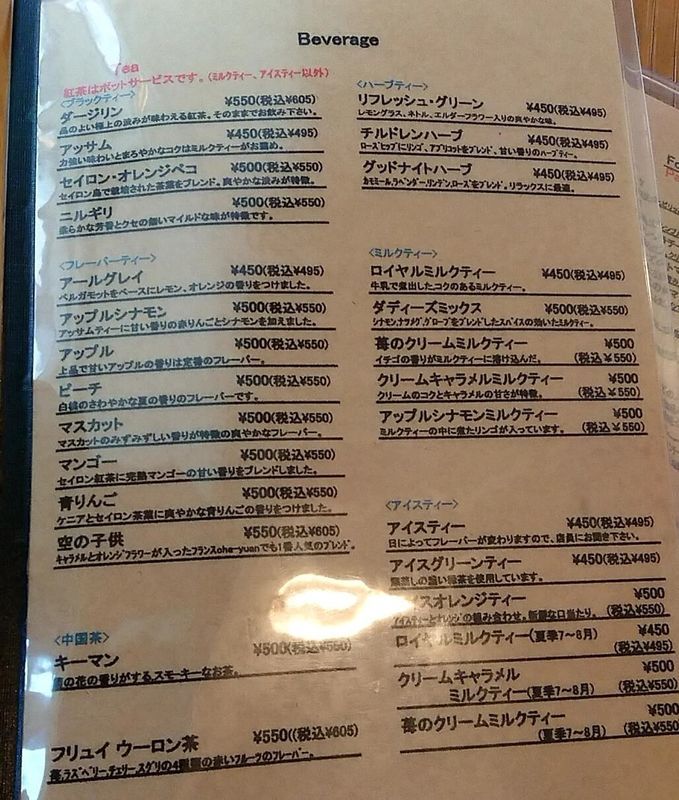 Beverage
Tea
紅茶はポットサービスです。(ミルクティー、アイスティー以外)
<ブラックティー>
ダージリン ¥550(税込¥605)
品のよい極上の渋みが味わえる紅茶。そのままでお飲み下さい。
アッサム ¥450(税込¥495)
力強い味わいとまろやかなコクはミルクティーがお薦め。
セイロン・オレンジペコ ¥500(税込¥550)
セイロン島で栽培された茶葉をブレンド。爽やかな渋みが特徴。
ニルギリ ¥500(税込¥550)
柔らかな芳香とクセの無いマイルドな味が特徴です。
<フレーバーティー>
アールグレイ ¥450(税込¥495)
ベルガモットをベースにレモン、オレンジの香りをつけました。
アップルシナモン ¥500(税込¥550)
アッサムティーに甘い香りの赤りんごとシナモンを加えました。
アップル ¥500(税込¥550)
上品で甘いアップルの香りは定番のフレーバー。
ピーチ ¥500(税込¥550)
白桃のさわやかな夏の香りのフレーバーです。
マスカット ¥500(税込¥550)
マスカットのみずみずしい香りが特徴の爽やかなフレーバー。
マンゴー ¥500(税込¥550)
セイロン紅茶に完熟マンゴーの甘い香りをブレンドしました。
青りんご ¥500(税込¥550)
ケニアとセイロン茶葉に爽やかな青りんごの香りをつけました。
空の子供 ¥550(税込¥605)
キャラメルとオレンジフラワーが入ったフランスcha-yuanでも1番人気のブレンド。
<中国茶>
キーマン ¥500(税込¥550)
の花の香りがするスモーキーなお茶。
フリュイ ウーロン茶 ¥550((税込¥605)
苺、ラズベリー、チェリー、スグリの4種類の赤いフルーツのフレーバー。
<ハーブティー>
リフレッシュ・グリーン ¥450(税込¥495)
レモングラス、ネトル、エルダーフラワー入りの爽やかな味。
チルドレンハーブ ¥450(税込¥495)
ローズヒップにリンゴ、アプリコットをブレンド、甘い香りのハーブティー。
グッドナイトハーブ ¥450(税込¥495)
カモミール、ラベンダー、リンデン、ローズをブレンド。リラックスに最適。
<ミルクティー>
ロイヤルミルクティー ¥450(税込¥495)
牛乳で煮出したコクのあるミルクティー。
ダディーズミックス ¥500(税込¥550)
シナモン、ナツメグ、グローブをブレンドしたスパイスの効いたミルクティー。
苺のクリームミルクティー ¥500
イチゴの香りがミルクティーに溶け込んだ。 (税込¥550)
クリームキャラメルミルクティー ¥500
クリームのコクとキャラメルの甘さが特徴。 (税込¥550)
アップルシナモンミルクティー ¥500
ミルクティーの中に煮たリンゴが入っています。 (税込¥550)
<アイスティー>
アイスティー ¥450(税込¥495)
日によってフレーバーが変わりますので、店員にお聞き下さい。
アイスグリーンティー ¥450(税込¥495)
深蒸しの濃い緑茶を使用しています。
イスオレンジティー ¥500
アイスティーとオレンジの組み合わせ。新鮮な口当たり。 (税込¥550)
ロイヤルミルクティー(夏季7~8月) ¥450
(税込¥495)
クリームキャラメル ¥500
ミルクティー(夏季7~8月) (税込¥550)
苺のクリームミルクティー ¥500
(夏季7~8月) (税込¥550)